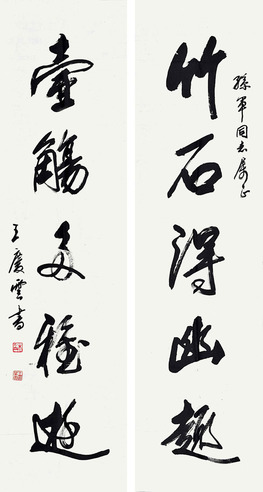 孫軍同志属正
竹石得幽趣
壺觴多雅遊
王慶雲書